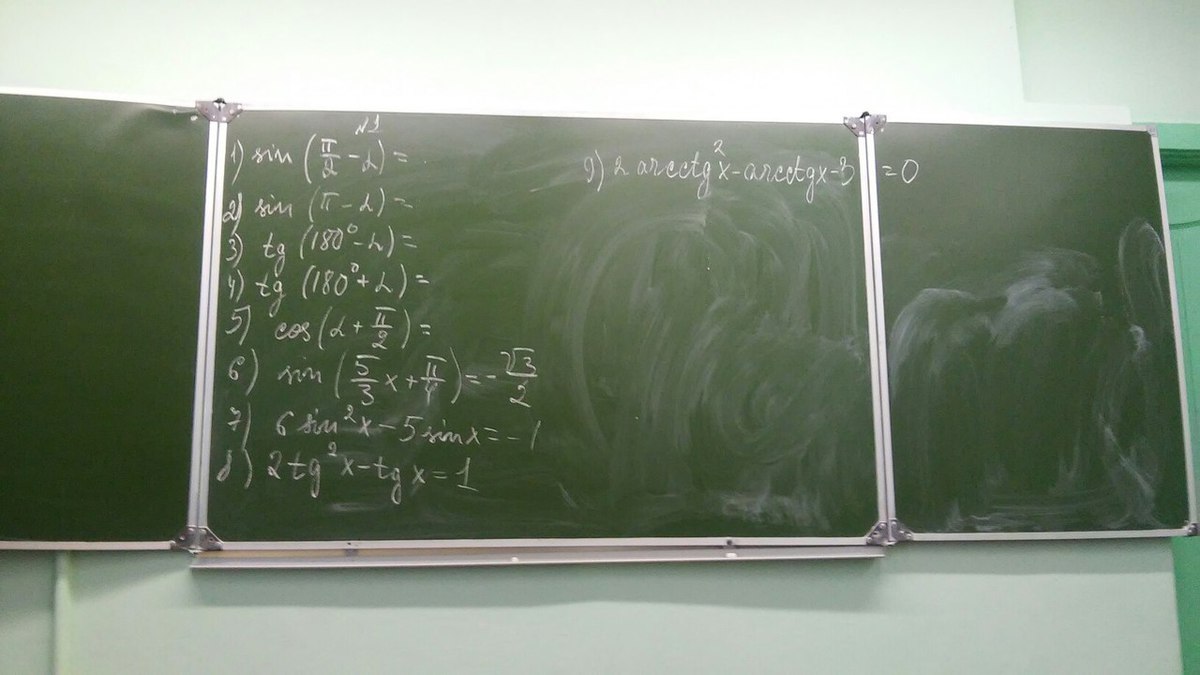 №1
1) sin (π/2 - α) =
2) sin (π - α) =
3) tg (180° - α) =
4) tg (180° + α) =
5) cos (α + π/2) =
6) sin (5/3 x + π/4) = - √3/2
7) 6 sin²x - 5 sin x = -1
8) 2 tg²x - tg x = 1
9) 2 arcctg²x - arcctgx - 3 = 0